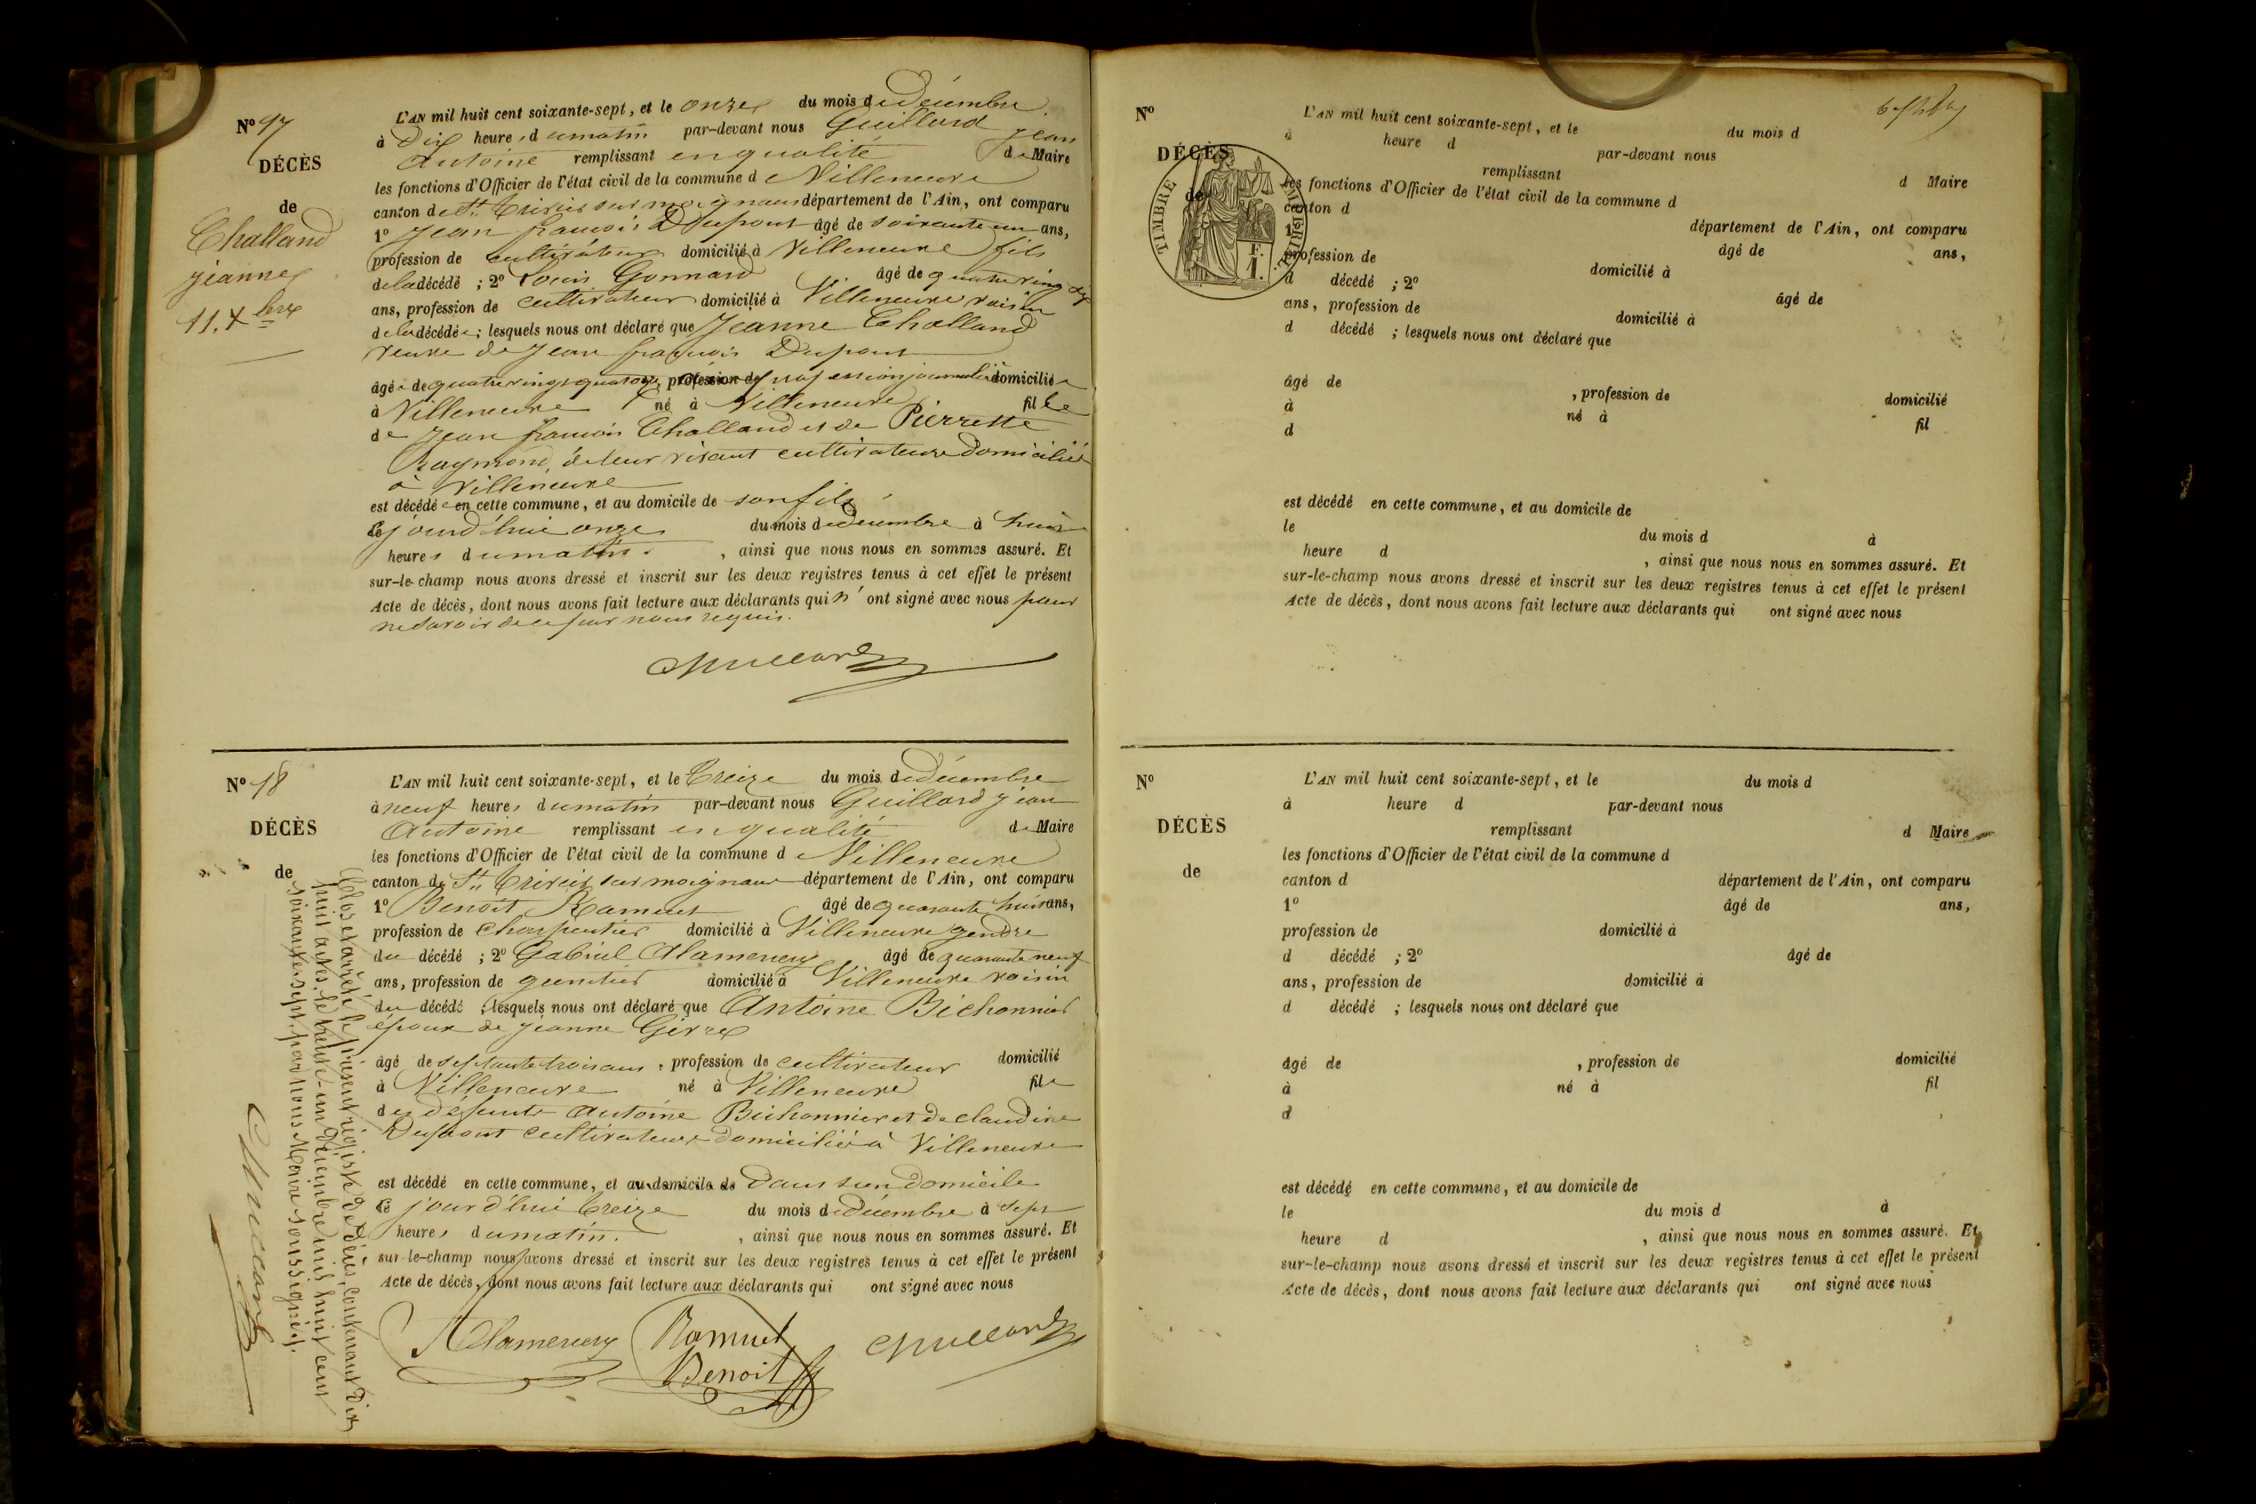 N° 17
DÉCÈS
de
Challand
jeanne
11. Xbre
L'AN mil huit cent soixante-sept, et le onze du mois de décembre
à Dix heures du matin par-devant nous Guillard Jean
Antoine remplissant en qualité de Maire
les fonctions d'Officier de l'état civil de la commune de Villeneuve
canton de St. Trivier sur moignans département de l'Ain, ont comparu
1° Jean françois Dupont âgé de soixante un ans,
profession de cultivateur domicilié à Villeneuve fils
de la décédé ; 2° Louis Gonnard âgé de quatre ving
ans, profession de cultivateur domicilié à Villeneuve voisin
de la décédée ; lesquels nous ont déclaré que Jeanne Challand
veuve de Jean françois Dupont
âgée de quatre vingt quatorze profession journalière domiciliée
à Villeneuve né à Villeneuve fille
de Jean françois Challand et de Pierrette
Raymond, de leur vivant cultivateurs domiciliés
à Villeneuve
est décédée en cette commune, et au domicile de son fils
jourd'hui onze du mois de décembre à huit
heures du matin. , ainsi que nous nous en sommes assuré. Et
sur-le-champ nous avons dressé et inscrit sur les deux registres tenus à cet effet le présent
Acte de décès, dont nous avons fait lecture aux déclarants qui n'ont signé avec nous pour
ne savoir de ce par nous requis.
Guillard
N° 18
DÉCÈS
de
L'AN mil huit cent soixante-sept, et le Treize du mois de décembre
à neuf heures du matin par-devant nous Guillard jean
Antoine remplissant en qualité de Maire
les fonctions d'Officier de l'état civil de la commune de Villeneuve
canton de St. Trivier sur moignans département de l'Ain, ont comparu
1° Benoit Ramuet âgé de quarante huit ans,
profession de charpentier domicilié à Villeneuve gendre
du décédé ; 2° Gabriel Alamercery âgé de quarante neuf
ans, profession de domicilié à Villeneuve voisin
du décédé ; lesquels nous ont déclaré que Antoine Bichonnier
époux de jeanne Givre
âgé de septante trois ans, profession de cultivateur domicilié
à Villeneuve né à Villeneuve fils
des défunts Antoine Bichonnier et de claudine
Dupont cultivateurs domiciliés à Villeneuve
est décédé en cette commune, et au domicile de Dans son domicile
jourd'hui Treize du mois de décembre à sept
heures du matin. , ainsi que nous nous en sommes assuré. Et
sur-le-champ nous avons dressé et inscrit sur les deux registres tenus à cet effet le présent
Acte de décès, dont nous avons fait lecture aux déclarants qui ont signé avec nous
Alamercery Ramuet Guillard
Benoit
Clos et arrêté le présent registre de décès, contenant dix
huit actes, le trente-un décembre mil huit cent
soixante sept, par nous Maire soussigné.
Guillard
N°
DÉCÈS
de
TIMBRE IMPÉRIAL
F.
1.
L'AN mil huit cent soixante-sept, et le du mois d
à heure d par-devant nous
remplissant d Maire
les fonctions d'Officier de l'état civil de la commune d
canton d département de l'Ain, ont comparu
1° âgé de ans,
profession de domicilié à
d décédé ; 2° âgé de
ans, profession de domicilié à
d décédé ; lesquels nous ont déclaré que
âgé de , profession de domicilié
à né à fil
d
est décédé en cette commune, et au domicile de
le du mois d à
heure d , ainsi que nous nous en sommes assuré. Et
sur-le-champ nous avons dressé et inscrit sur les deux registres tenus à cet effet le présent
Acte de décès, dont nous avons fait lecture aux déclarants qui ont signé avec nous
N°
DÉCÈS
de
L'AN mil huit cent soixante-sept, et le du mois d
à heure d par-devant nous
remplissant d Maire
les fonctions d'Officier de l'état civil de la commune d
canton d département de l'Ain, ont comparu
1° âgé de ans,
profession de domicilié à
d décédé ; 2° âgé de
ans, profession de domicilié à
d décédé ; lesquels nous ont déclaré que
âgé de , profession de domicilié
à né à fil
d
est décédé en cette commune, et au domicile de
le du mois d à
heure d , ainsi que nous nous en sommes assuré. Et
sur-le-champ nous avons dressé et inscrit sur les deux registres tenus à cet effet le présent
Acte de décès, dont nous avons fait lecture aux déclarants qui ont signé avec nous